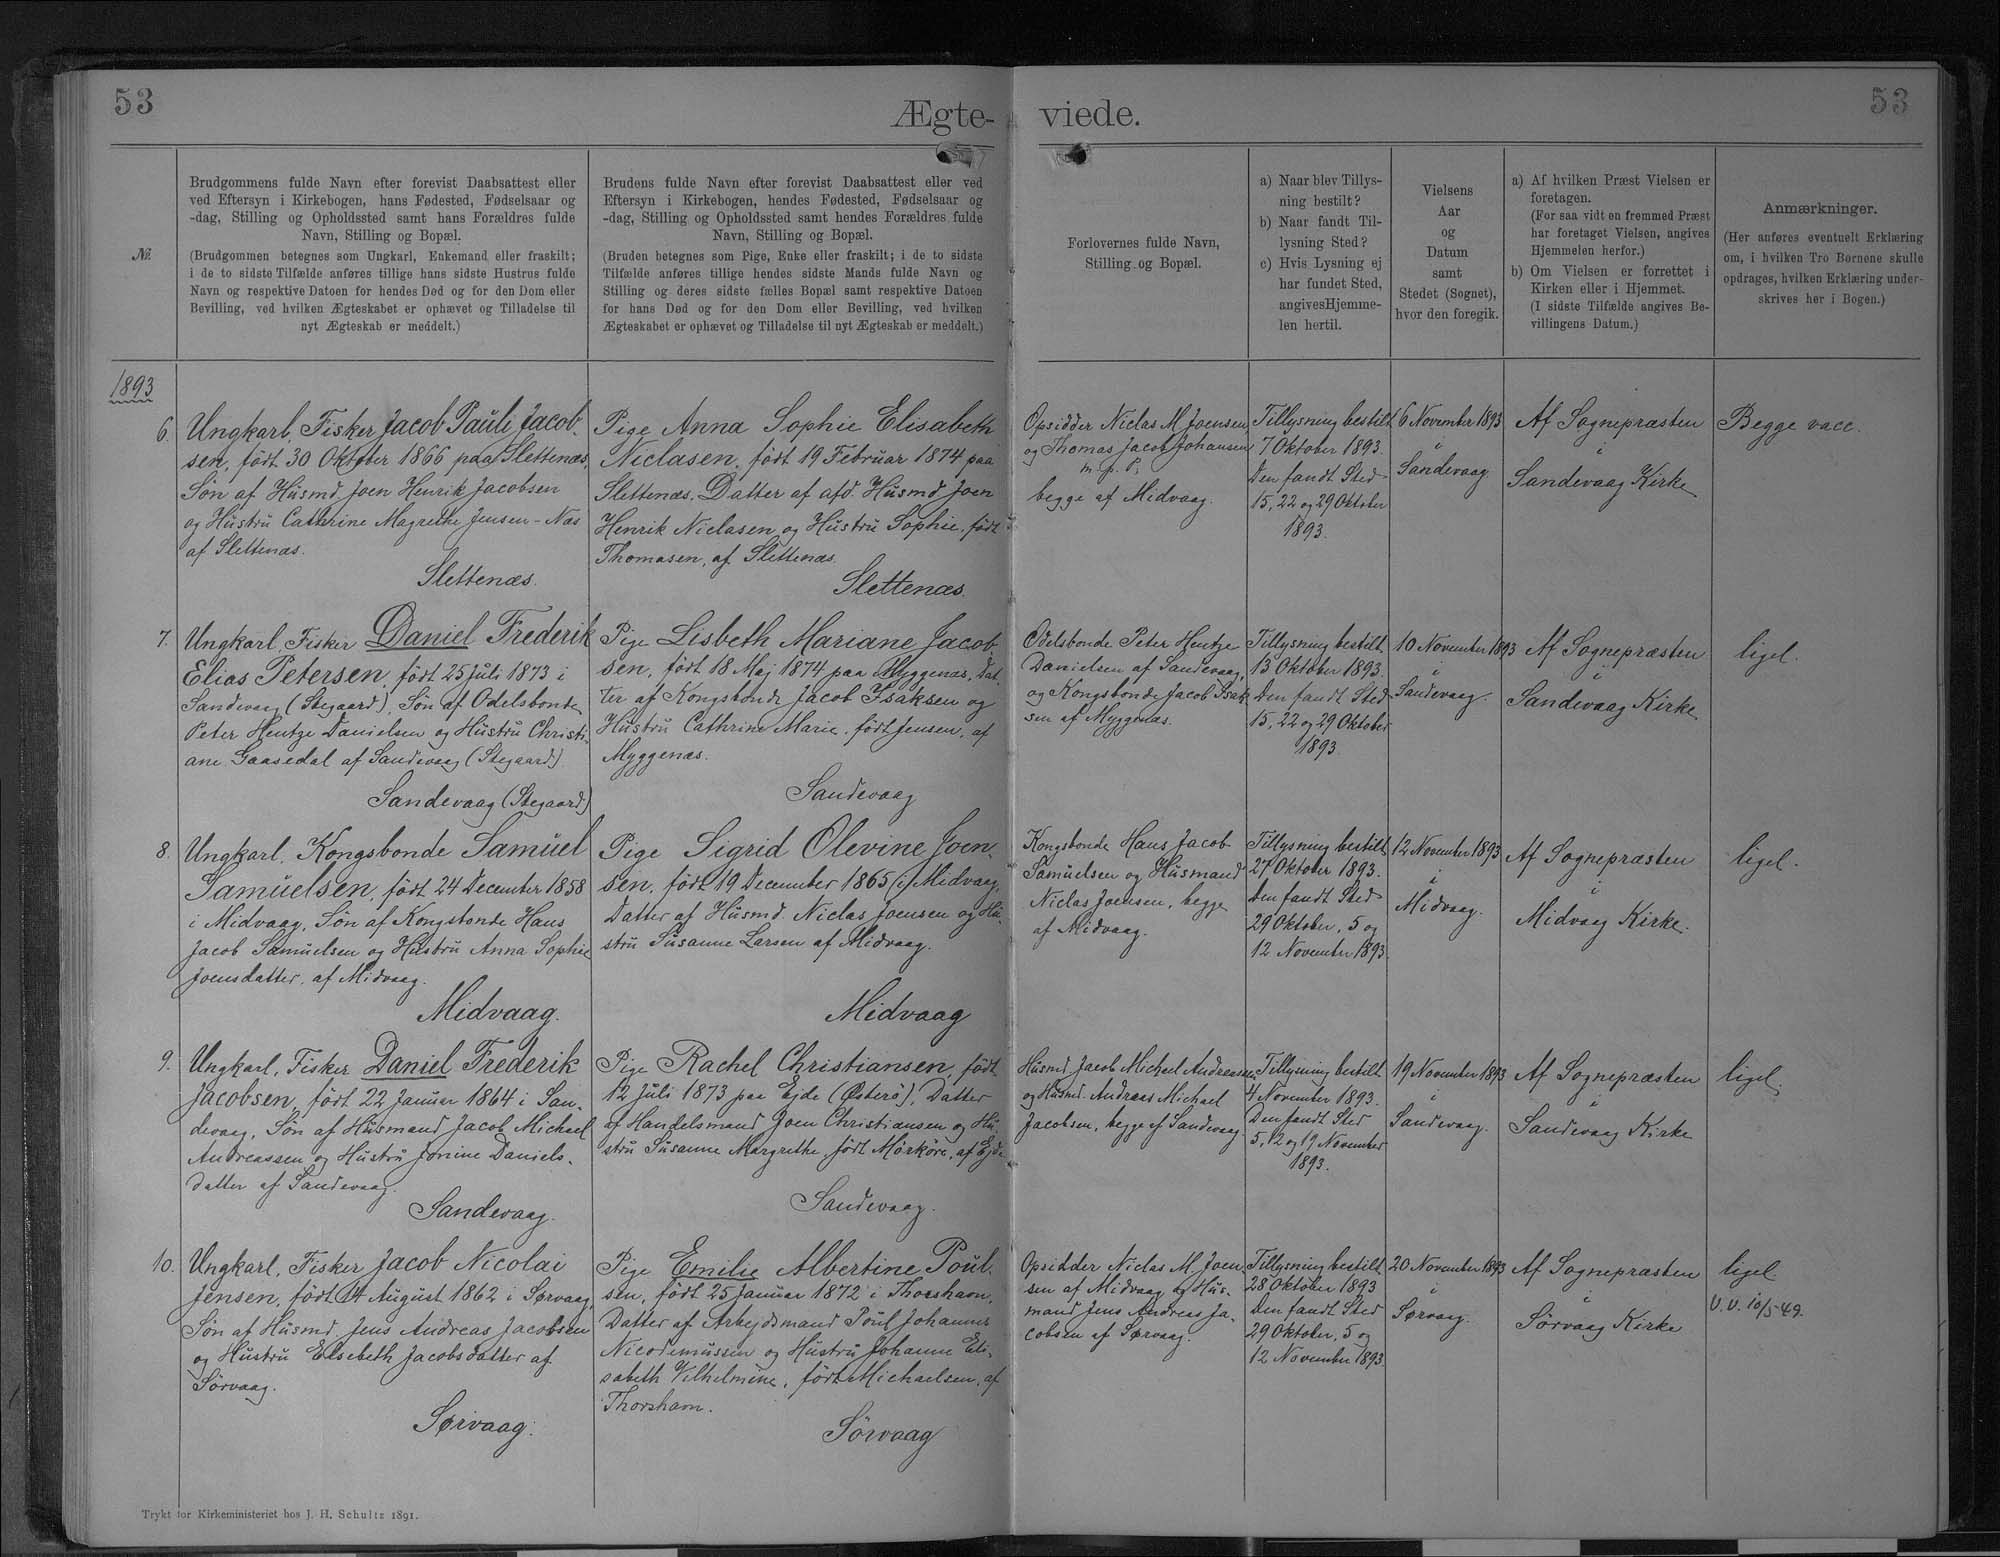 53
Ægte-
viede.
53
№
Brudgommens fulde Navn efter forevist Daabsattest eller
ved Eftersyn i Kirkebogen, hans Fødested, Fødselsaar og
-dag, Stilling og Opholdssted samt hans Forældres fulde
Navn, Stilling og Bopæl.
(Brudgommen betegnes som Ungkarl, Enkemand eller fraskilt;
i de to sidste Tilfælde anføres tillige hans sidste Hustrus fulde
Navn og respektive Datoen for hendes Død og for den Dom eller
Bevilling, ved hvilken Ægteskabet er ophævet og Tilladelse til
nyt Ægteskab er meddelt.)
Brudens fulde Navn efter forevist Daabsattest eller ved
Eftersyn i Kirkebogen, hendes Fødested, Fødselsaar og
-dag, Stilling og Opholdssted samt hendes Forældres fulde
Navn, Stilling og Bopæl.
(Bruden betegnes som Pige, Enke eller fraskilt; i de to sidste
Tilfælde anføres tillige hendes sidste Mands fulde Navn og
Stilling og deres sidste fælles Bopæl samt respektive Datoen
for hans Død og for den Dom eller Bevilling, ved hvilken
Ægteskabet er ophævet og Tilladelse til nyt Ægteskab er meddelt.)
Forlovernes fulde Navn,
Stilling og Bopæl.
a) Naar blev Tillys-
ning bestilt?
b) Naar fandt Til-
lysning Sted?
c) Hvis Lysning ej
har fundet Sted,
angives Hjemme-
len hertil.
Vielsens
Aar
og
Datum
samt
Stedet (Sognet),
hvor den foregik.
a) Af hvilken Præst Vielsen er
foretagen.
(For saa vidt en fremmed Præst
har foretaget Vielsen, angives
Hjemmelen herfor.)
b) Om Vielsen er forrettet i
Kirken eller i Hjemmet.
(I sidste Tilfælde angives Be-
villingens Datum.)
Anmærkninger.
(Her anføres eventuelt Erklæring
om, i hvilken Tro Børnene skulle
opdrages, hvilken Erklæring under-
skrives her i Bogen.)
1893
6.
Ungkarl, Fisker Jacob Pauli Jacob-
sen, født 30 Oktober 1866 paa Slettenæs,
Søn af Husmd. Joen Henrik Jacobsen
og Hustru Cathrine Magrethe Jensen-Næs
af Slettenæs.
Slettenæs.
Pige Anna Sophie Elisabeth
Niclasen, født 19 Februar 1874 paa
Slettenæs, Datter af afd. Husmd. Joen
Henrik Niclasen og Hustru Sophie, født
Thomasen, af Slettenæs.
Slettenæs.
Opsidder Niclas M Joensen
og Thomas Jacob Johansen
m. p. P.
begge af Midvaag.
Tillysning bestilt
7 Oktober 1893.
Den fandt Sted
15, 22 og 29 Oktober
1893.
6 November 1893
i
Sandevaag.
Af Sognepræsten
i
Sandevaag Kirke
Begge vacc.
7.
Ungkarl, Fisker Daniel Frederik
Elias Petersen, født 25 Juli 1873 i
Sandevaag (Stegaard), Søn af Odelsbonde
Peter Hentze Danielsen og Hustru Christi-
ane Gaasedal af Sandevaag (Stegaard).
Sandevaag (Stegaard)
Pige Lisbeth Mariane Jacob-
sen, født 18 Maj 1874 paa Myggenæs, Dat-
ter af Kongsbonde Jacob Isaksen og
Hustru Cathrine Marie, født Jensen, af
Myggenæs.
Sandevaag
Odelsbonde Peter Hentze
Danielsen af Sandevaag,
og Kongsbonde Jacob Isak-
sen af Myggenæs.
Tillysning bestilt
13 Oktober 1893.
Den fandt Sted
15, 22 og 29 Oktober
1893.
10 November 1893
i
Sandevaag.
Af Sognepræsten
i
Sandevaag Kirke
ligel.
8.
Ungkarl, Kongsbonde Samuel
Samuelsen, født 24 December 1858
i Midvaag, Søn af Kongsbonde Hans
Jacob Samuelsen og Hustru Anna Sophie
Joensdatter, af Midvaag.
Midvaag.
Pige Sigrid Olevine Joen-
sen, født 19 December 1865 i Midvaag,
Datter af Husmd. Niclas Joensen og Hu-
stru Susanne Larsen af Midvaag.
Midvaag
Kongsbonde Hans Jacob
Samuelsen og Husmand
Niclas Joensen, begge
af Midvaag.
Tillysning bestilt
27 Oktober 1893.
Den fandt Sted
29 Oktober, 5 og
12 November 1893.
12 November 1893
i
Midvaag.
Af Sognepræsten
i
Midvaag Kirke.
ligel.
9.
Ungkarl, Fisker Daniel Frederik
Jacobsen, født 22 Januar 1864 i San-
devaag, Søn af Husmand Jacob Michael
Andreassen og Hustru Jonine Daniels-
datter af Sandevaag.
Sandevaag.
Pige Rachel Christiansen, født
12 Juli 1873 paa Ejde (Østerö), Datter
af Handelsmand Joen Christiansen og Hu-
stru Susanne Margrethe, født Mörköre, af Ejde
Sandevaag.
Husmd. Jacob Michael Andreassen
og Husmd. Andreas Michael
Jacobsen, begge af Sandevaag.
Tillysning bestilt
4 November 1893.
Den fandt Sted
5, 12 og 19 November
1893.
19 November 1893
i
Sandevaag.
Af Sognepræsten
i
Sandevaag Kirke
ligel.
10.
Ungkarl, Fisker Jacob Nicolai
Jensen, født 14 August 1862 i Sørvaag,
Søn af Husmd. Jens Andreas Jacobsen
og Hustru Elsebeth Jacobsdatter af
Sörvaag.
Sørvaag.
Pige Emilie Albertine Poul-
sen, født 25 Januar 1872 i Thorshavn,
Datter af Arbejdsmand Poul Johannes
Nicodemussen og Hustru Johanne Eli-
sabeth Vilhelmine, født Michaelsen, af
Thorshavn.
Sörvaag
Opsidder Niclas M. Joen-
sen af Midvaag og Hus-
mand Jens Andreas Ja-
cobsen af Sørvaag.
Tillysning bestilt
28 Oktober 1893
Den fandt Sted
29 Oktober, 5 og
12 November 1893.
20 November 1893
i
Sørvaag.
Af Sognepræsten
i
Sörvaag Kirke
ligel.
V.V. 10/5 49.
Trykt for Kirkeministeriet hos J. H. Schultz 1891.